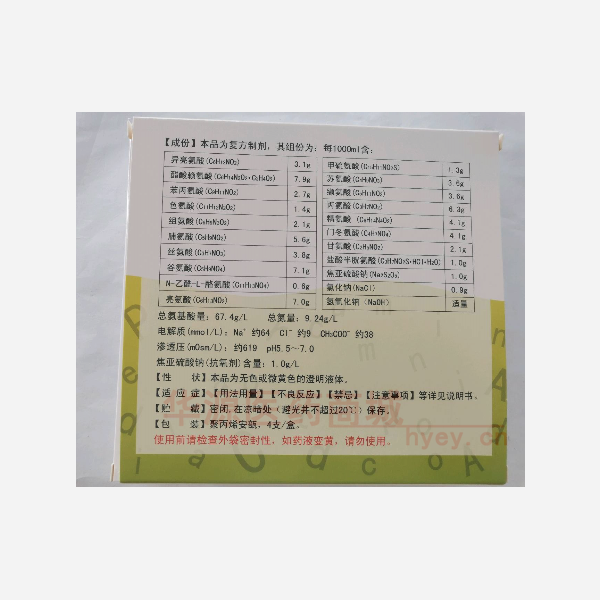 【成份】本品为复方制剂，其组份为：每1000ml含：
异亮氨酸(C₆H₁₃NO₂) 3.1g 甲硫氨酸(C₅H₁₁NO₂S) 1.3g
醋酸赖氨酸(C₆H₁₄N₂O₂·C₂H₄O₂) 7.9g 苏氨酸(C₄H₉NO₃) 3.6g
苯丙氨酸(C₉H₁₁NO₂) 2.7g 缬氨酸(C₅H₁₁NO₂) 3.6g
色氨酸(C₁₁H₁₂N₂O₂) 1.4g 丙氨酸(C₃H₇NO₂) 6.3g
组氨酸(C₆H₉N₃O₂) 2.1g 精氨酸(C₆H₁₄N₄O₂) 4.1g
脯氨酸(C₅H₉NO₂) 5.6g 门冬氨酸(C₄H₇NO₄) 4.1g
丝氨酸(C₃H₇NO₃) 3.8g 甘氨酸(C₂H₅NO₂) 2.1g
谷氨酸(C₅H₉NO₄) 7.1g 盐酸半胱氨酸(C₃H₇NO₂S·HCl·H₂O) 1.0g
N-乙酰-L-酪氨酸(C₁₁H₁₃NO₄) 0.6g 焦亚硫酸钠(Na₂S₂O₅) 1.0g
亮氨酸(C₆H₁₃NO₂) 7.0g 氯化钠(NaCl) 0.9g
氢氧化钠(NaOH) 适量
总氨基酸量：67.4g/L 总氮量：9.24g/L
电解质(mmol/L)：Na⁺ 约64 Cl⁻ 约9 CH₃COO⁻ 约38
渗透压(mOsm/L)：约619 pH5.5～7.0
焦亚硫酸钠(抗氧剂)含量：1.0g/L
【性 状】本品为无色或微黄色的澄明液体。
【适 应 症】【用法用量】【不良反应】【禁忌】【注意事项】等详见说明书。
【贮 藏】密闭，在凉暗处（避光并不超过20℃）保存。
【包 装】聚丙烯安瓿，4支/盒。
使用前请检查外袋密封性，如药液变黄，请勿使用。
hyey.cn